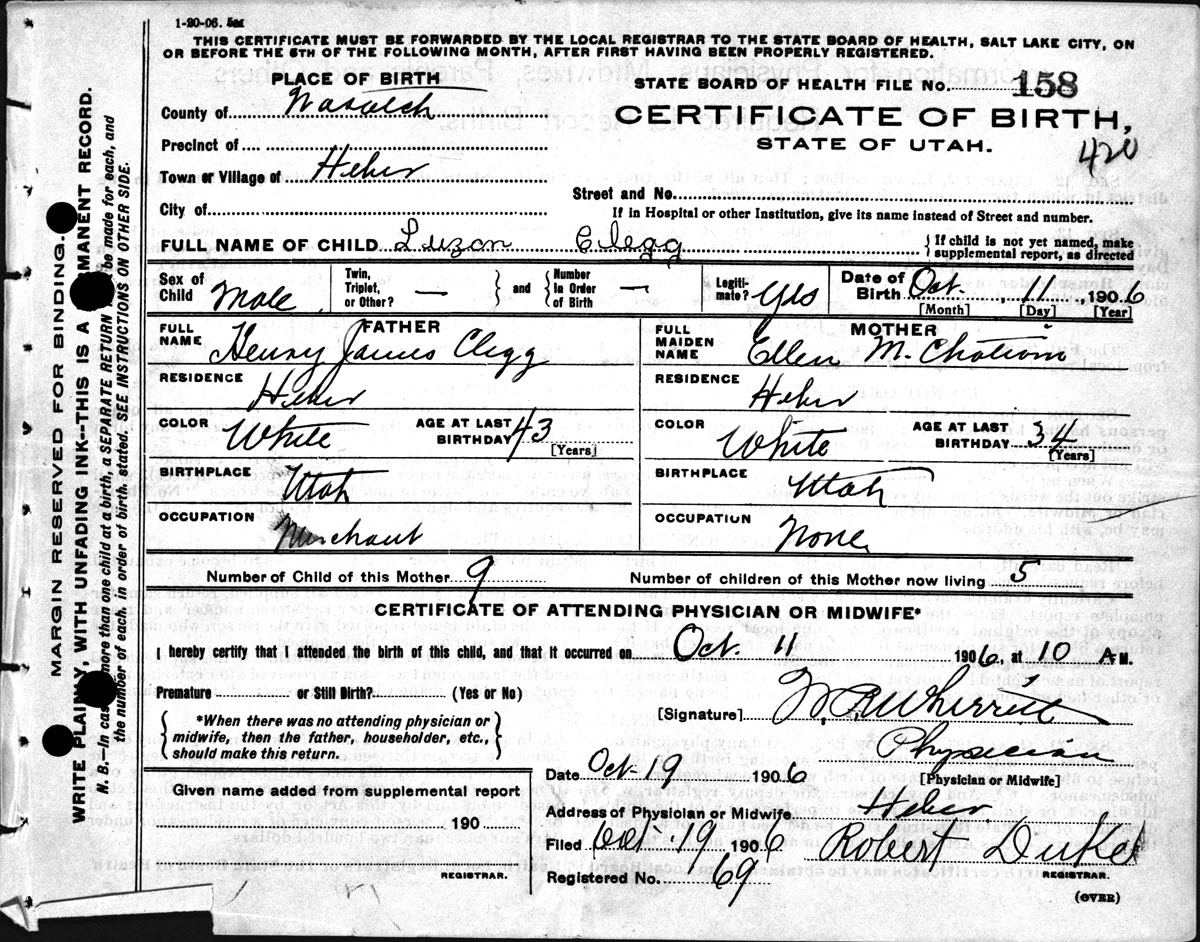 1-20-06. 5m
THIS CERTIFICATE MUST BE FORWARDED BY THE LOCAL REGISTRAR TO THE STATE BOARD OF HEALTH, SALT LAKE CITY, ON
OR BEFORE THE 5TH OF THE FOLLOWING MONTH, AFTER FIRST HAVING BEEN PROPERLY REGISTERED.
PLACE OF BIRTH
County of Wasatch
Precinct of
Town or Village of Heber
City of
STATE BOARD OF HEALTH FILE No. 158
CERTIFICATE OF BIRTH,
STATE OF UTAH.
420
Street and No.
If in Hospital or other Institution, give its name instead of Street and number.
FULL NAME OF CHILD Luzon Clegg
If child is not yet named, make
supplemental report, as directed
Sex of Child Male
Twin, Triplet, or Other? —
and
Number in Order of Birth —
Legitimate? Yes
Date of Birth Oct. , 11 , 1906
[Month] [Day] [Year]
FATHER
FULL NAME Henry James Clegg
RESIDENCE Heber
COLOR White
AGE AT LAST BIRTHDAY 43
[Years]
BIRTHPLACE Utah
OCCUPATION Merchant
MOTHER
FULL MAIDEN NAME Ellen M.
RESIDENCE Heber
COLOR White
AGE AT LAST BIRTHDAY 34
[Years]
BIRTHPLACE Utah
OCCUPATION None
Number of Child of this Mother 9
Number of children of this Mother now living 5
CERTIFICATE OF ATTENDING PHYSICIAN OR MIDWIFE*
I hereby certify that I attended the birth of this child, and that it occurred on Oct. 11 1906, at 10 A M.
Premature — or Still Birth? (Yes or No)
*When there was no attending physician or
midwife, then the father, householder, etc.,
should make this return.
[Signature] Wherritt
Physician
[Physician or Midwife]
Date Oct-19 1906
Address of Physician or Midwife Heber
Filed Oct-19 1906
Robert Duke
REGISTRAR.
Registered No. 69
(OVER)
Given name added from supplemental report
190
REGISTRAR.
MARGIN RESERVED FOR BINDING.
WRITE PLAINLY, WITH UNFADING INK--THIS IS A MANENT RECORD.
N. B.—In cas more than one child at a birth, a SEPARATE RETURN be made for each, and
the number of each, in order of birth, stated. SEE INSTRUCTIONS ON OTHER SIDE.